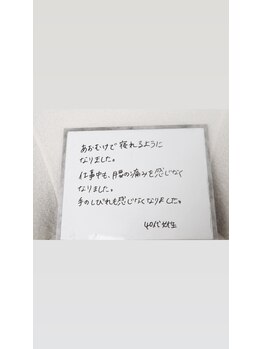 あおむけで寝れるように
なりました。
仕事中も、肩の痛みを感じなく
なりました。
手のしびれも感じなくなりました。
40代女性